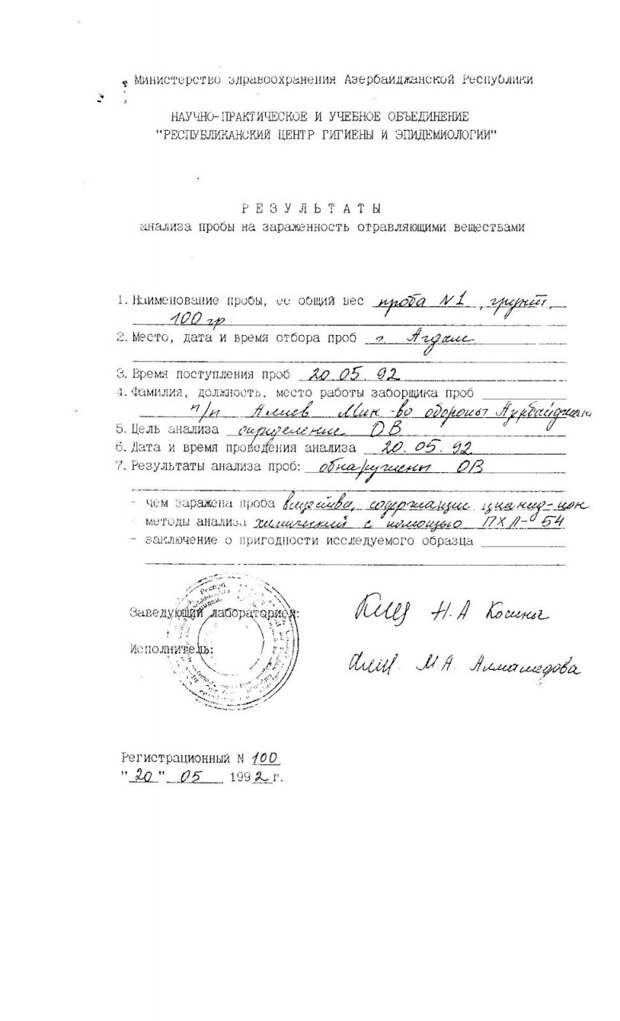 Министерство здравоохранения Азербайджанской Республики
НАУЧНО-ПРАКТИЧЕСКОЕ И УЧЕБНОЕ ОБЪЕДИНЕНИЕ
"РЕСПУБЛИКАНСКИЙ ЦЕНТР ГИГИЕНЫ И ЭПИДЕМИОЛОГИИ"
Р Е З У Л Ь Т А Т Ы
анализа пробы на зараженность отравляющими веществами
1. Наименование пробы, ее общий вес проба N1, грунт,
100 гр
2. Место, дата и время отбора проб г. Агдам
3. Время поступления проб 20.05.92
4. Фамилия, должность, место работы заборщика проб
п/п Алиев Мин-во обороны
5. Цель анализа определение ОВ
6. Дата и время проведения анализа 20.05.92
7. Результаты анализа проб: обнаружены ОВ
- чем заражена проба вещества, содержащие цианид-ион
- методы анализа химический с помощью ПХЛ-54
- заключение о пригодности исследуемого образца
Заведующий лабораторией: Н.А
Исполнитель: М А Алмамедова
Регистрационный N 100
"20" 05 1992 г.